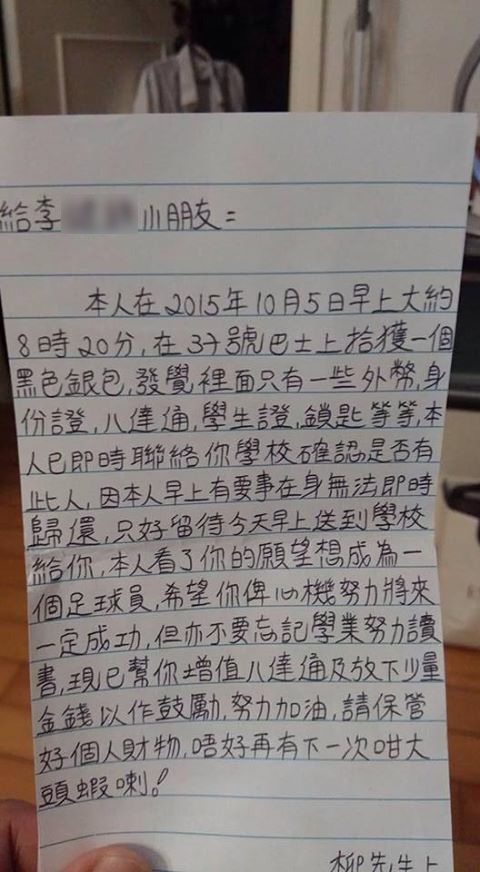 給李 小朋友:
本人在2015年10月5日早上大約
8時20分,在37號巴士上拾獲一個
黑色銀包,發覺裡面只有一些外幣,身
份證,八達通,學生證,鎖匙等等,本
人已即時聯絡你學校確認是否有
此人,因本人早上有要事在身無法即時
歸還,只好留待今天早上送到學校
給你,本人看了你的願望想成為一
個足球員,希望你俾心機努力將來
一定成功,但亦不要忘記學業努力讀
書,現已幫你增值八達通及放下少量
金錢以作鼓勵,努力加油,請保管
好個人財物,唔好再有下一次咁大
頭蝦喇!
柳先生上